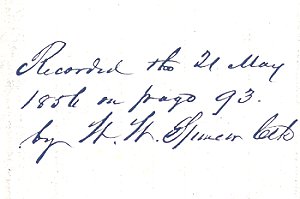 Recorded the 21 May
1856 on page 93.
by W. W. Spencer Clk